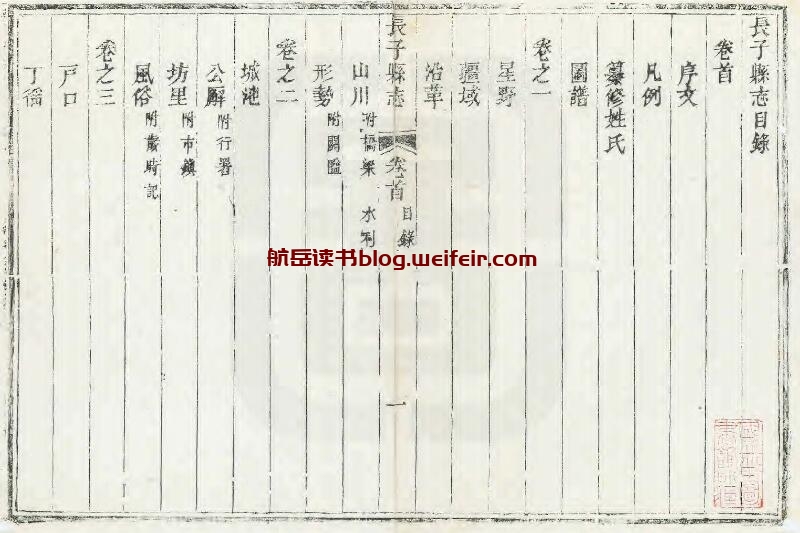 長子縣志目錄
卷首
序文
凡例
纂修姓氏
圖譜
卷之一
星野
疆域
沿革
長子縣志 卷首 目錄 一
山川 附橋梁 水利
形勢 附關隘
卷之二
城池
公廨 附行署
坊里 附市鎮
風俗 附歲時記
卷之三
戸口
丁徭
航岳读书blog.weifeir.com